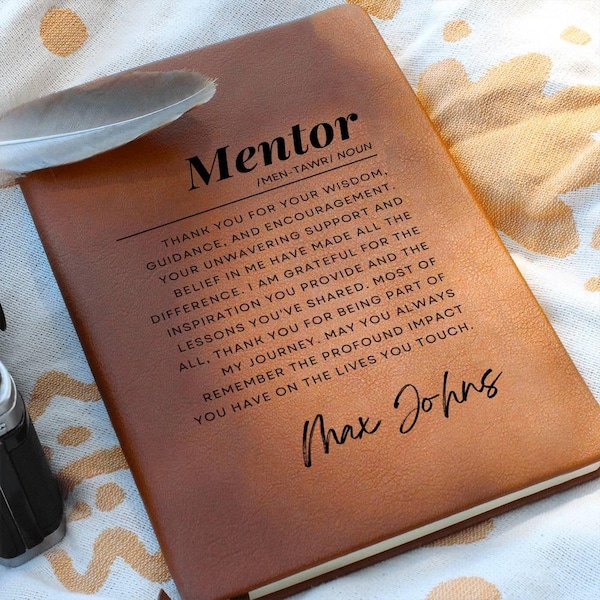 Mentor
/MEN-TAWR/ NOUN
THANK YOU FOR YOUR WISDOM,
GUIDANCE, AND ENCOURAGEMENT.
YOUR UNWAVERING SUPPORT AND
BELIEF IN ME HAVE MADE ALL THE
DIFFERENCE. I AM GRATEFUL FOR THE
INSPIRATION YOU PROVIDE AND THE
LESSONS YOU'VE SHARED. MOST OF
ALL, THANK YOU FOR BEING PART OF
MY JOURNEY. MAY YOU ALWAYS
REMEMBER THE PROFOUND IMPACT
YOU HAVE ON THE LIVES YOU TOUCH.
Max Johns